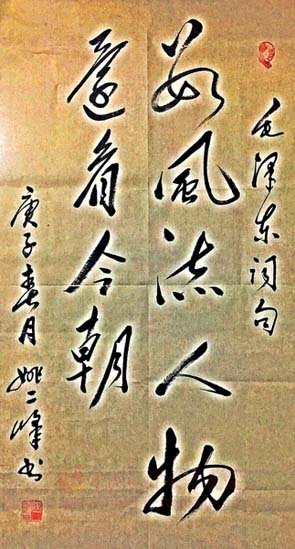 毛泽东词句
数风流人物
还看今朝
庚子春月姚二峰书